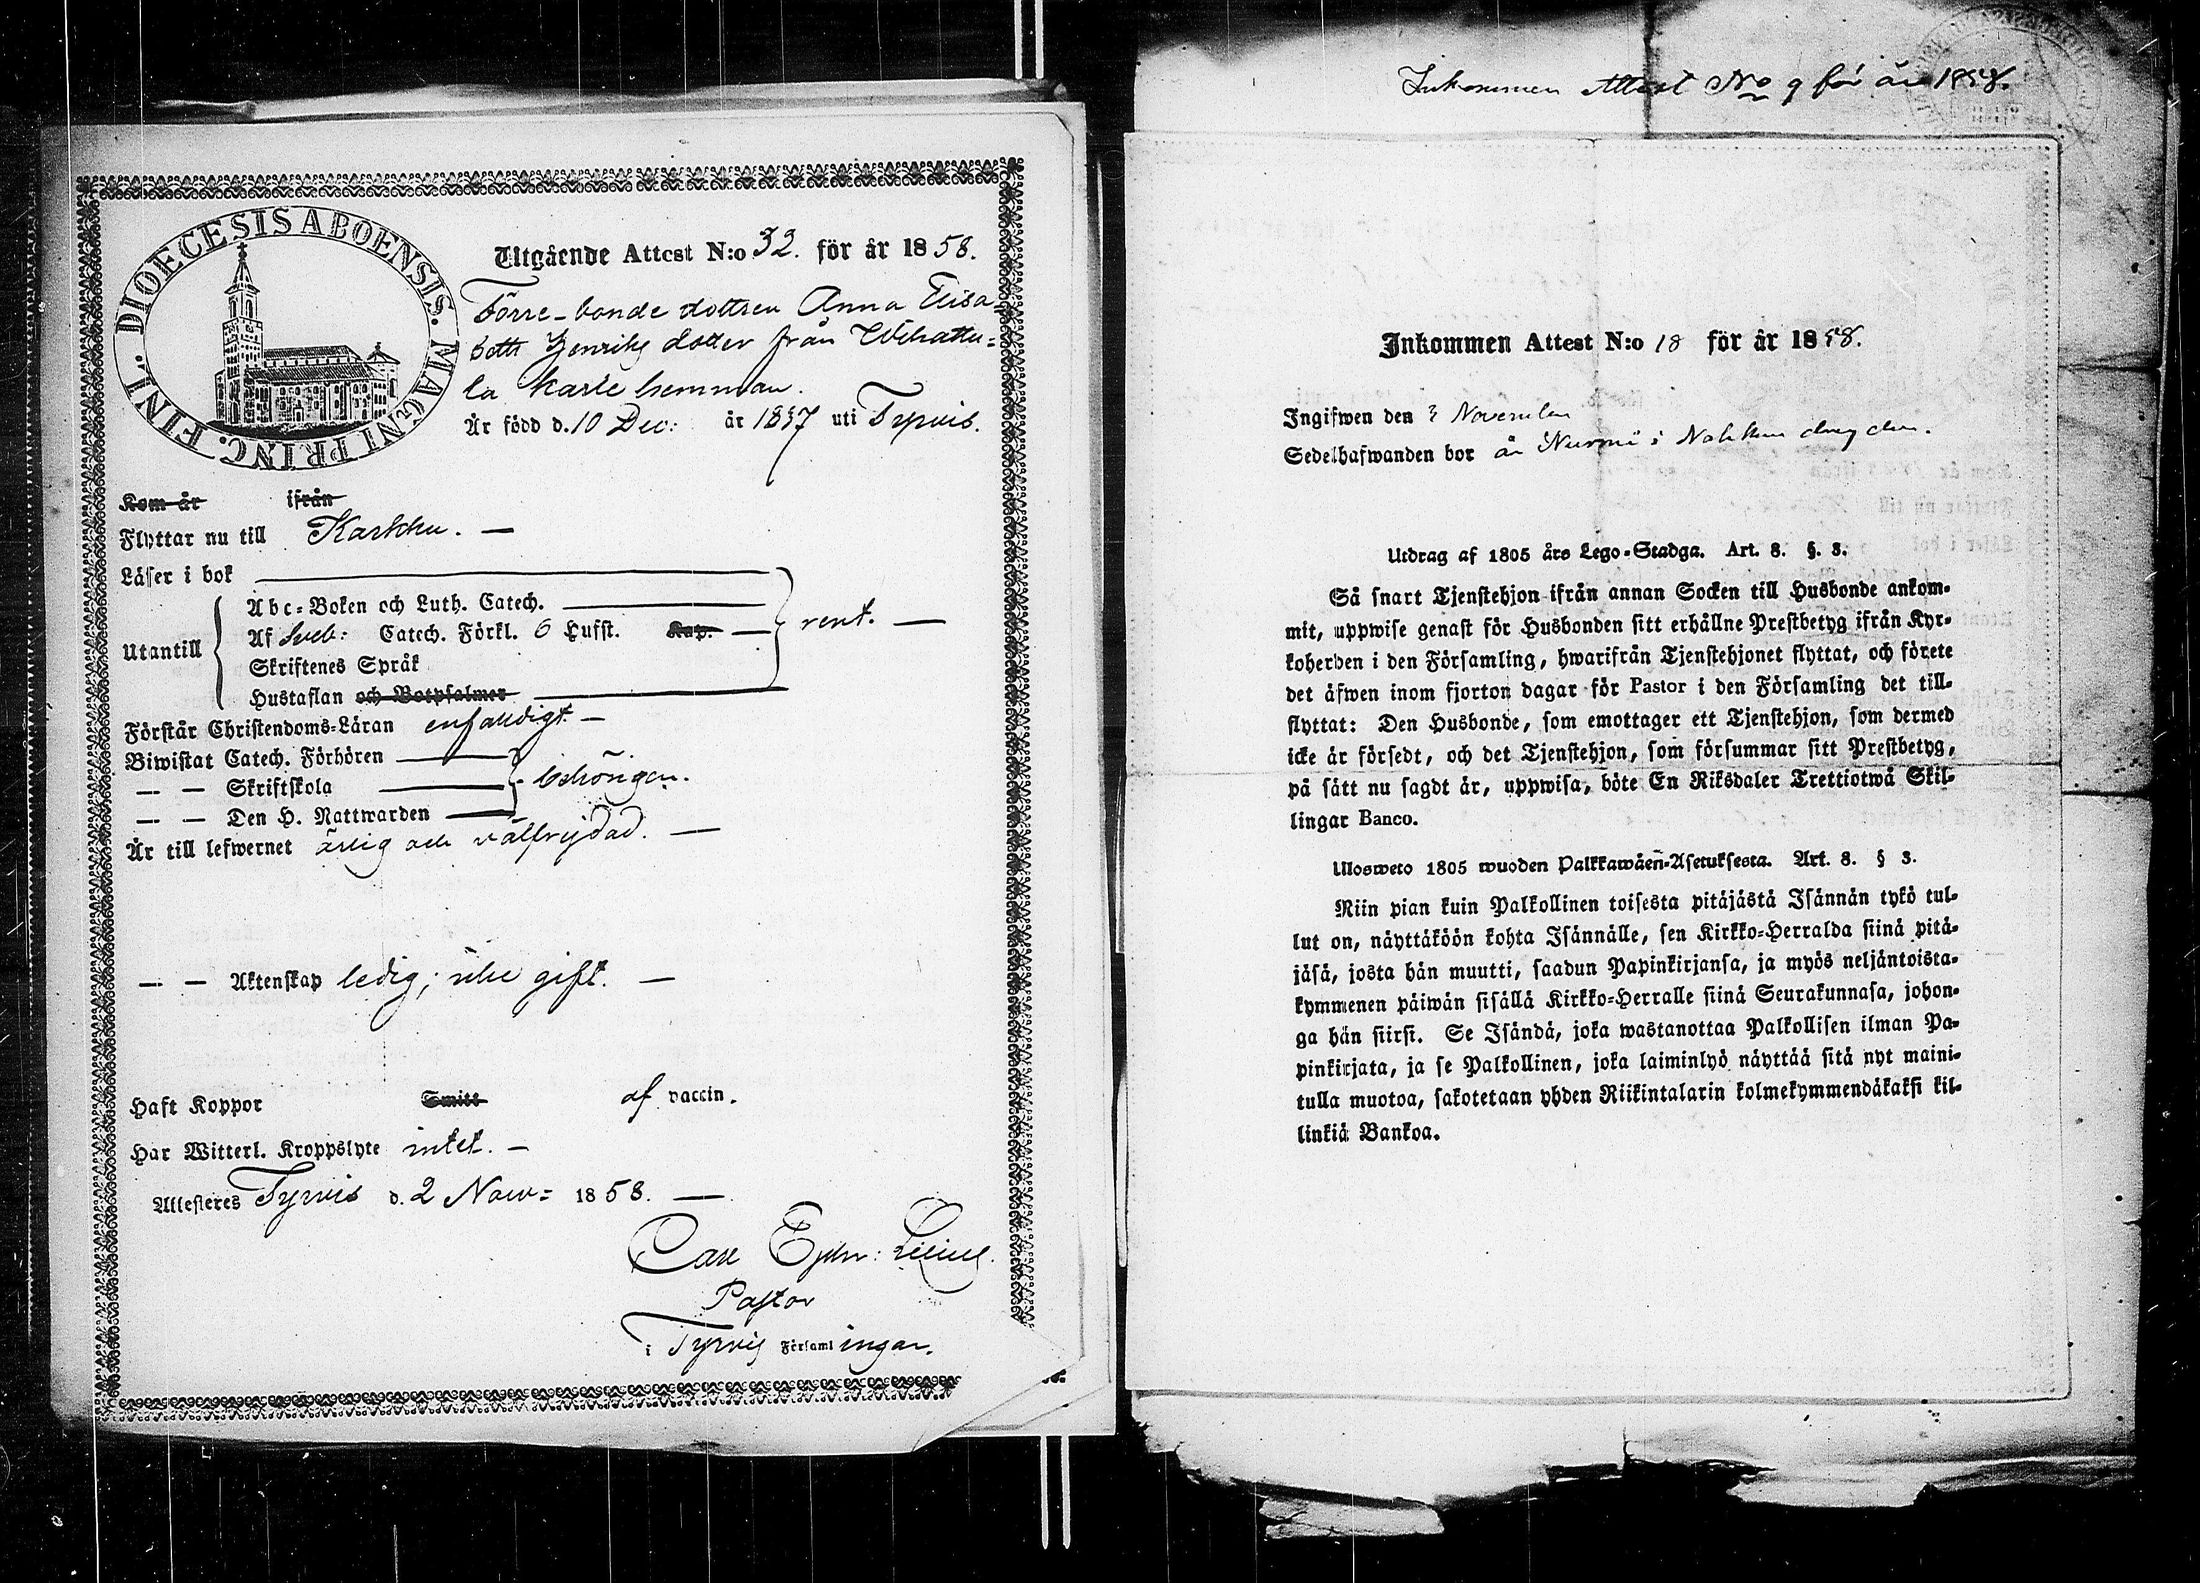 DIOECESIS ABOENSIS. MAGNI PRINC. FINL.
Utgående Attest N:o 32. för år 1858.
Förre-bonde dottren Anna Elisa-
beth Henriks dotter från Wehattu-
la Karle hemman.
Är född d. 10 Dec: år 1837 uti Tyrvis.
Kom år ifrån
Flyttar nu till Karkku. —
Läser i bok
Utantill
Abc-Boken och Luth. Catech.
Af Sveb: Catech. Förkl. 6 Hufst. Kap. — rent. —
Skriftenes Språk
Hustaflan och Botpsalmer
Förstår Christendoms-Läran enfaldigt. —
Biwistat Catech. Förhören
— — Skriftskola behörigen.
— — Den H. Nattwarden
Är till lefwernet ärlig och välfrejdad. —
— — Äktenskap ledig; icke gift. —
Haft Koppor Smitt af vaccin.
Har Witterl. Kroppslyte intet. —
Attesteres Tyrvis d. 2 Nov: 1858. —
Carl
Pastor
i Tyrvis Församlingar.
Inkommen Attest No 9 för år 1858.
Inkommen Attest N:o 18 för år 1858.
Ingifwen den 3 November
Sedelhafwanden bor å Nurmi i
Utdrag af 1805 års Lego-Stadga. Art. 8. §. 3.
Så snart Tjenstehjon ifrån annan Socken till Husbonde ankom-
mit, uppwise genast för Husbonden sitt erhållne Prestbetyg ifrån Kyr-
koherden i den Församling, hwarifrån Tjenstehjonet flyttat, och förete
det äfwen inom fjorton dagar för Pastor i den Församling det till-
flyttat: Den Husbonde, som emottager ett Tjenstehjon, som dermed
icke är försedt, och det Tjenstehjon, som försummar sitt Prestbetyg,
på sätt nu sagdt är, uppwisa, böte En Riksdaler Trettiotwå Skil-
lingar Banco.
Ulosweto 1805 wuoden Palkkawäen-Asetuksesta. Art. 8. § 3.
Niin pian kuin Palkollinen toisesta pitäjästä Isännän tykö tul-
lut on, näyttäköön kohta Isännälle, sen Kirkko-Herralda siinä pitä-
jäsä, josta hän muutti, saadun Papinkirjansa, ja myös neljäntoista-
kymmenen päiwän sisällä Kirkko-Herralle siinä Seurakunnasa, johon-
ga hän siirsi. Se Isändä, joka wastanottaa Palkollisen ilman Pa-
pinkirjata, ja se Palkollinen, joka laiminlyö näyttää sitä nyt maini-
tulla muotoa, sakotetaan yhden Riikintalarin kolmekymmendäkaksi kil-
linkiä Bankoa.